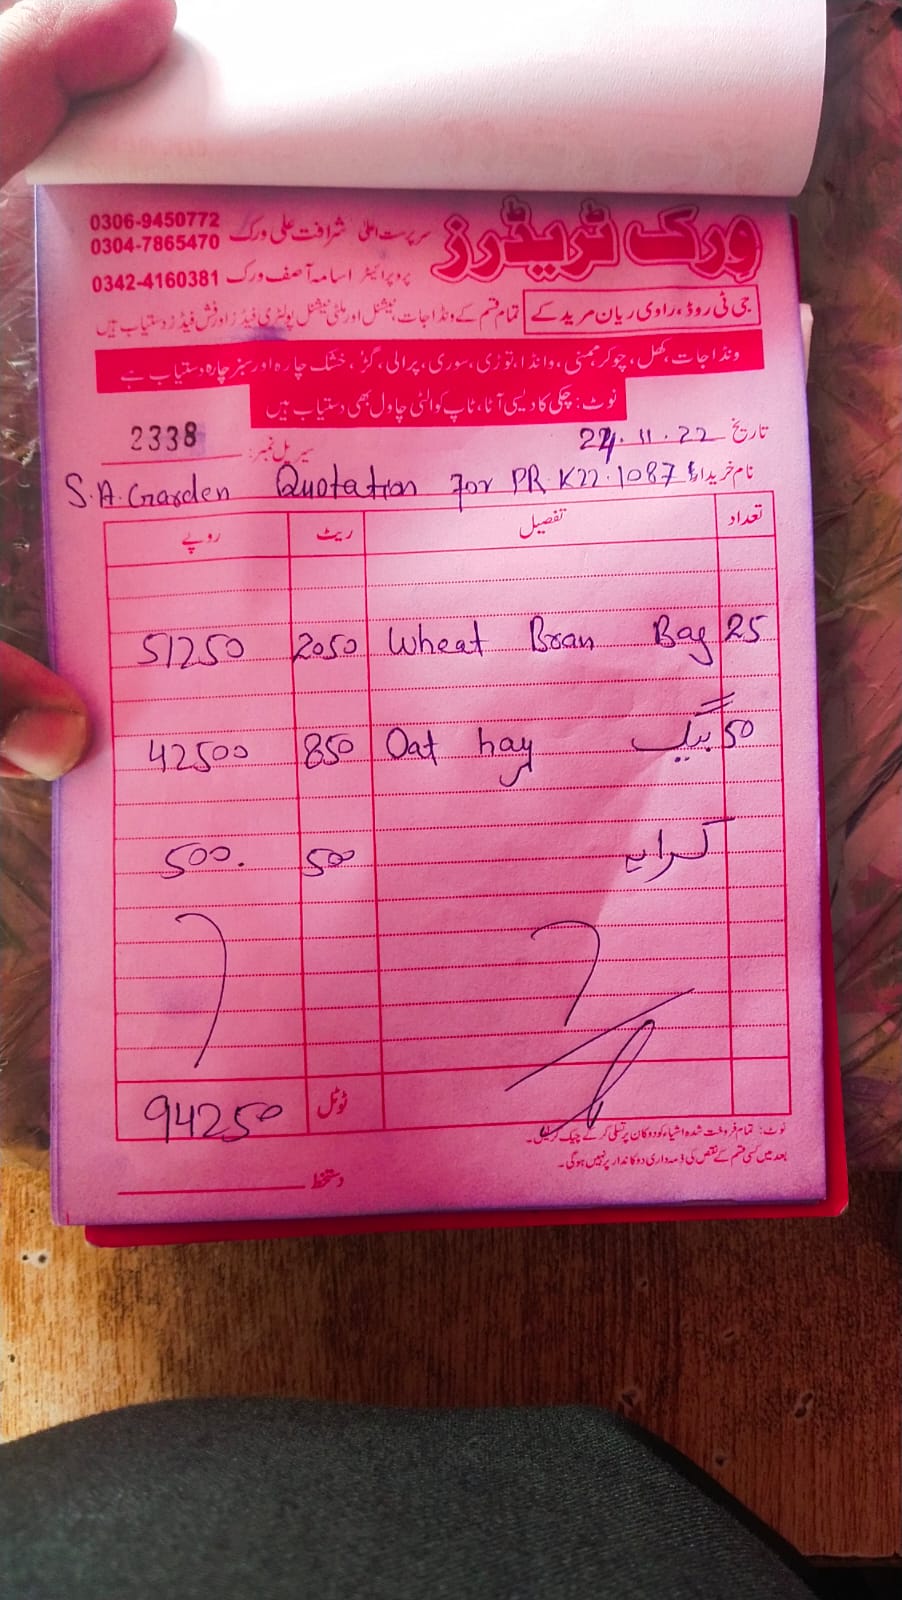 ورک ٹریڈرز
سرپرست اعلیٰ شرافت علی ورک 0306-9450772
0304-7865470
پروپرائیٹر اسامہ آصف ورک 0342-4160381
جی ٹی روڈ، راوی ریان مریدکے
تمام قسم کے ونڈا جات، نیشنل اور ملٹی نیشنل پولٹری فیڈز اور فش فیڈز دستیاب ہیں
ونڈا جات، کھل، چوکر، وانڈا، توڑی، سوری، پرالی، گڑ، خشک چارہ اور سبز چارہ دستیاب ہے
نوٹ: چکی کا دیسی آٹا، ٹاپ کوالٹی چاول بھی دستیاب ہیں
تاریخ 24.11.22 سیریل نمبر: 2338
نام خریدار
S.A. Garden Quotation For PR K22.1087
تعداد تفصیل ریٹ روپے
25 Wheat Bran Bag 2050 51250
50 بیگ Oat hay 850 42500
کرایہ 500 500.
ٹوٹل 94250
نوٹ: تمام فروخت شدہ اشیاء کو دوکان پر تسلی کر کے چیک کر لیں۔
بعد میں کسی قسم کے نقص کی ذمہ داری دوکاندار پر نہیں ہوگی۔
دستخط